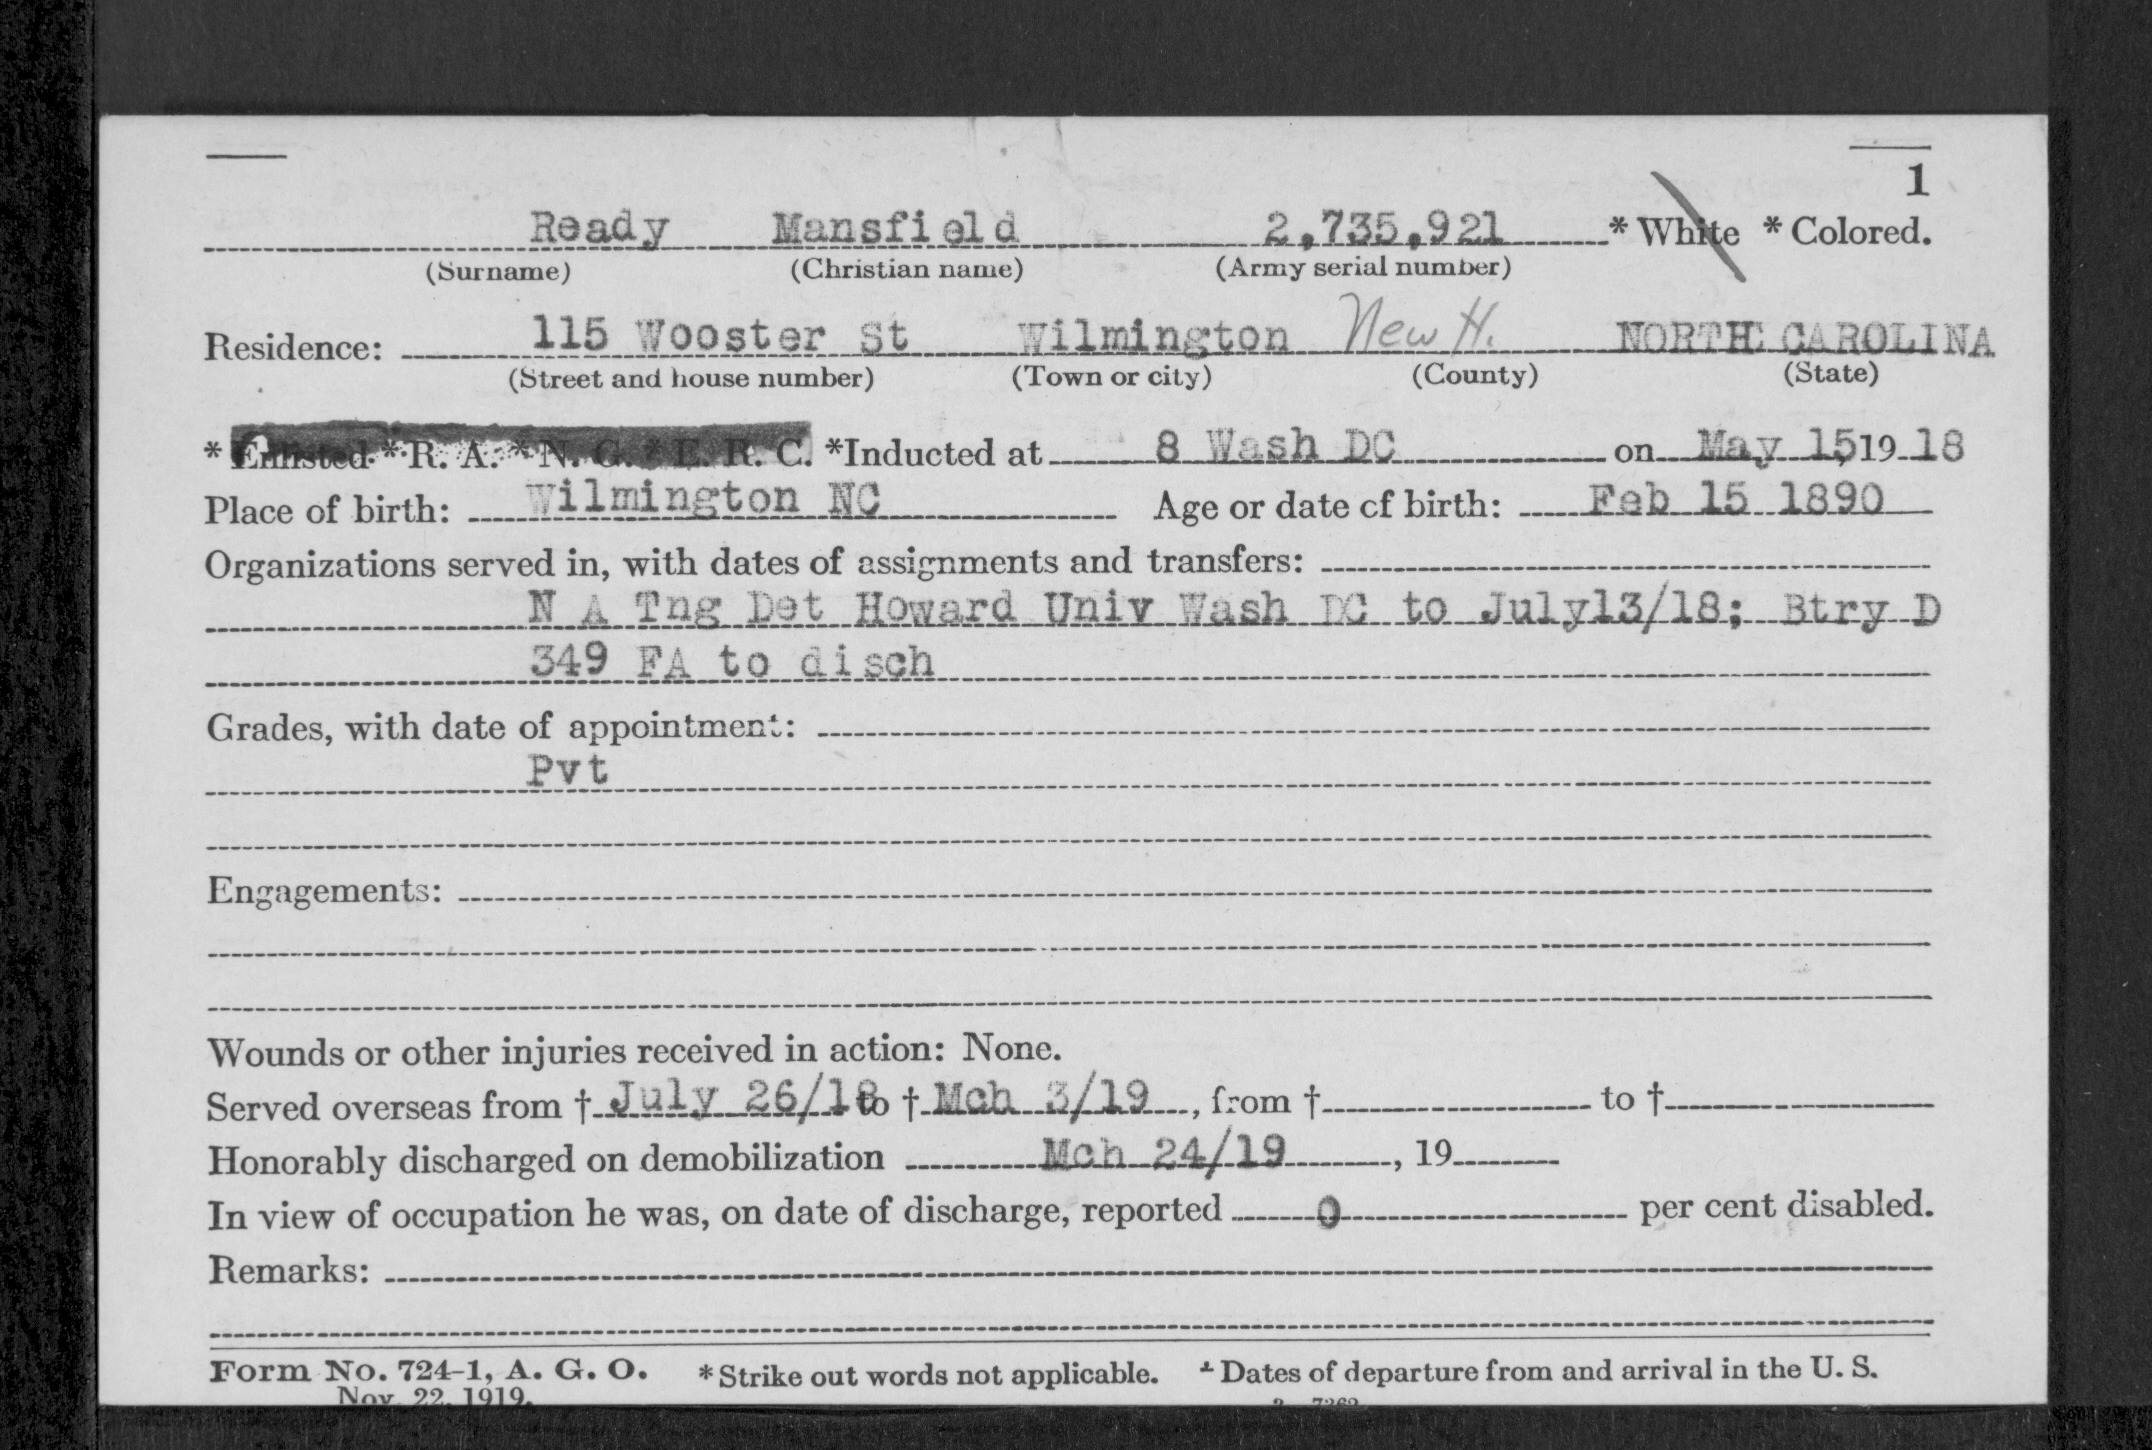 1
Ready Mansfield 2,735,921 * White * Colored.
(Surname) (Christian name) (Army serial number)
Residence: 115 Wooster St Wilmington New H. NORTH CAROLINA
(Street and house number) (Town or city) (County) (State)
* Enlisted * R. A. * N. G. * E. R. C. *Inducted at 8 Wash DC on May 15, 19 18
Place of birth: Wilmington NC Age or date of birth: Feb 15 1890
Organizations served in, with dates of assignments and transfers:
N A Tng Det Howard Univ Wash DC to July13/18; Btry D
349 FA to disch
Grades, with date of appointment:
Pvt
Engagements:
Wounds or other injuries received in action: None.
Served overseas from † July 26/18 to † Mch 3/19, from † to †
Honorably discharged on demobilization Mch 24/19, 19
In view of occupation he was, on date of discharge, reported 0 per cent disabled.
Remarks:
Form No. 724-1, A. G. O. * Strike out words not applicable. † Dates of departure from and arrival in the U. S.
Nov. 22, 1919.